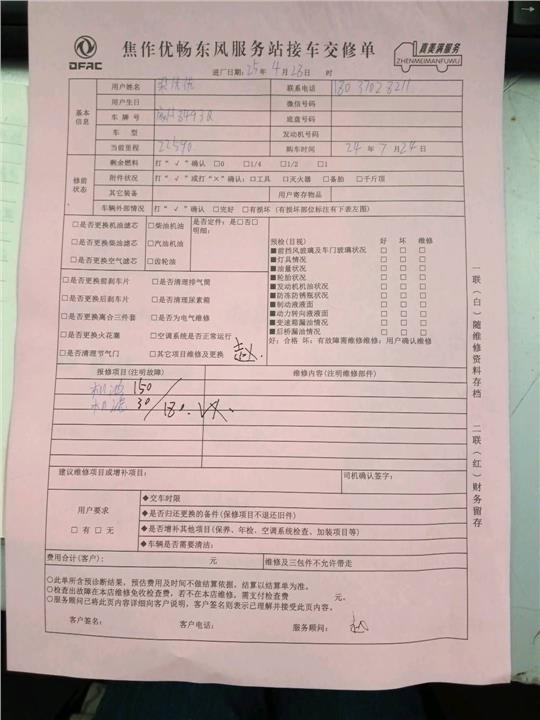 DFAC
焦作优畅东风服务站接车交修单
真美满服务
ZHENMEIMANFUWU
进厂日期：25年 4月 23日 时
基本信息
用户姓名
联系电话
用户生日 微信号码
车牌号 底盘号码
车 型 发动机号码
当前里程 22590 购车时间 24年 7月 24日
修前状态
剩余燃料 打“√”确认 □0 □1/4 □1/2 □1
附件状况 打“√”或打“×”确认：□工具 □灭火器 □备胎 □千斤顶
其它装备 用户寄存物品
车辆外部情况 打“√”确认 □完好 □有损坏（有损坏部位标注有下表左图）
□是否更换机油滤芯 □柴油机油 是否定件：是□否□
明细：
□是否更换柴油滤芯 □汽油机油
□是否更换空气滤芯 □齿轮油
□是否更换前刹车片 □是否清理排气筒
□是否更换后刹车片 □是否清理尿素箱
□是否更换离合三件套 □是否为电气维修
□是否更换火花塞 □空调系统是否正常运行
□是否清理节气门 □其它项目维修及更换 赵
预检(目视) 好 坏 维修
■前挡风玻璃及车门玻璃状况 □ □ □
■灯具情况 □ □ □
■油量状况 □ □ □
■轮胎状况 □ □ □
■发动机机油状况 □ □ □
■防冻防锈瓶状况 □ □ □
■制动液液面 □ □ □
■动力转向液液面 □ □ □
■变速箱漏油情况 □ □ □
■后桥漏油情况 □ □ □
好：合格 坏：有故障需维修维修：用户确认维修
报修项目(注明故障) 维修内容(注明维修部件)
机油 150
机滤 30/180.
建议维修项目或增补项目： 司机确认签字：
用户要求
□有 □无
◆交车时限
◆是否归还更换的备件(保修项目不退还旧件)
◆是否增补其他项目(保养、年检、空调系统检查、加装项目等)
◆车辆是否需要清洁：
费用合计(客户)： 元 维修及三包件不允许带走
○此单所含预诊断结果，预估费用及时间不做结算依据，结算以结算单为准。
○检查出故障在本店维修免收检查费，若不在本店维修，需支付检查费 元。
○服务顾问已将此页内容详细向客户说明，客户签名则表示已理解并接受此页内容。
客户签名： 客户电话： 服务顾问：赵
一联(白)随维修资料存档
二联(红)财务留存